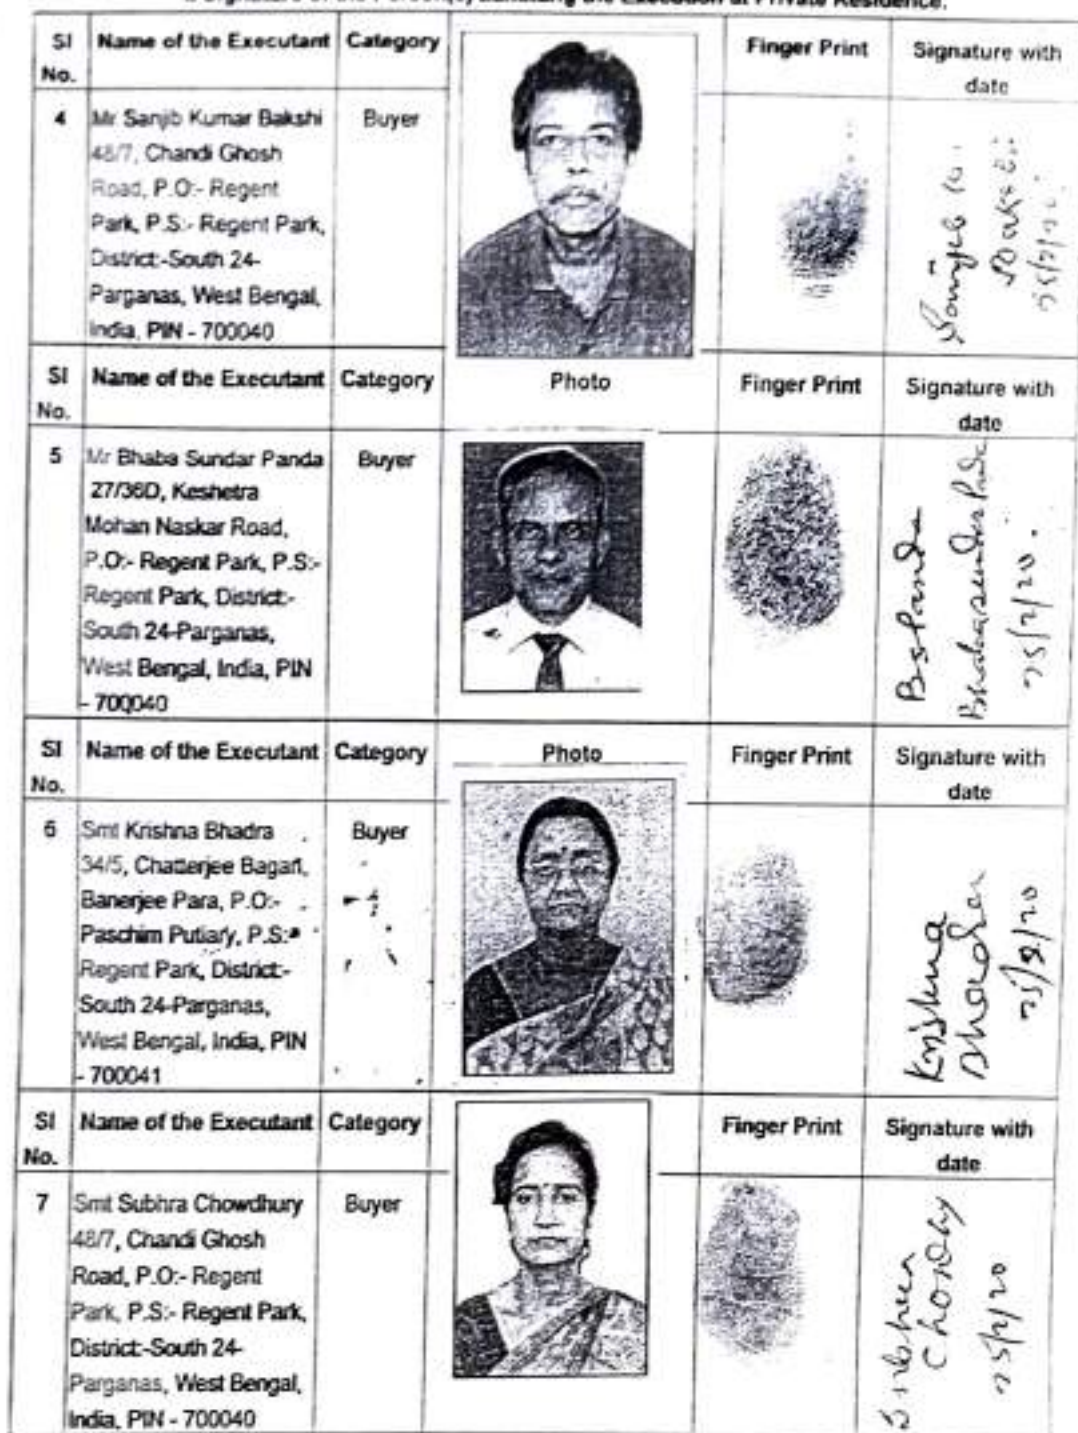 Signature of the Person(s) admitting the Execution at Private Residence.
Sl No. Name of the Executant Category Finger Print Signature with date
4 Mr Sanjib Kumar Bakshi Buyer
48/7, Chandi Ghosh
Road, P.O:- Regent
Park, P.S:- Regent Park,
District:-South 24-
Parganas, West Bengal,
India, PIN - 700040
Sl No. Name of the Executant Category Photo Finger Print Signature with date
5 Mr Bhaba Sundar Panda Buyer
27/36D, Keshetra
Mohan Naskar Road,
P.O:- Regent Park, P.S:-
Regent Park, District:-
South 24-Parganas,
West Bengal, India, PIN
- 700040
BsPanda
25/2/20.
Sl No. Name of the Executant Category Photo Finger Print Signature with date
6 Smt Krishna Bhadra Buyer
34/5, Chatterjee Bagan,
Banerjee Para, P.O:-
Paschim Putiary, P.S:-
Regent Park, District:-
South 24-Parganas,
West Bengal, India, PIN
- 700041
Krishna
Bhadra
25/2/20
Sl No. Name of the Executant Category Finger Print Signature with date
7 Smt Subhra Chowdhury Buyer
48/7, Chandi Ghosh
Road, P.O:- Regent
Park, P.S:- Regent Park,
District:-South 24-
Parganas, West Bengal,
India, PIN - 700040
25/2/20